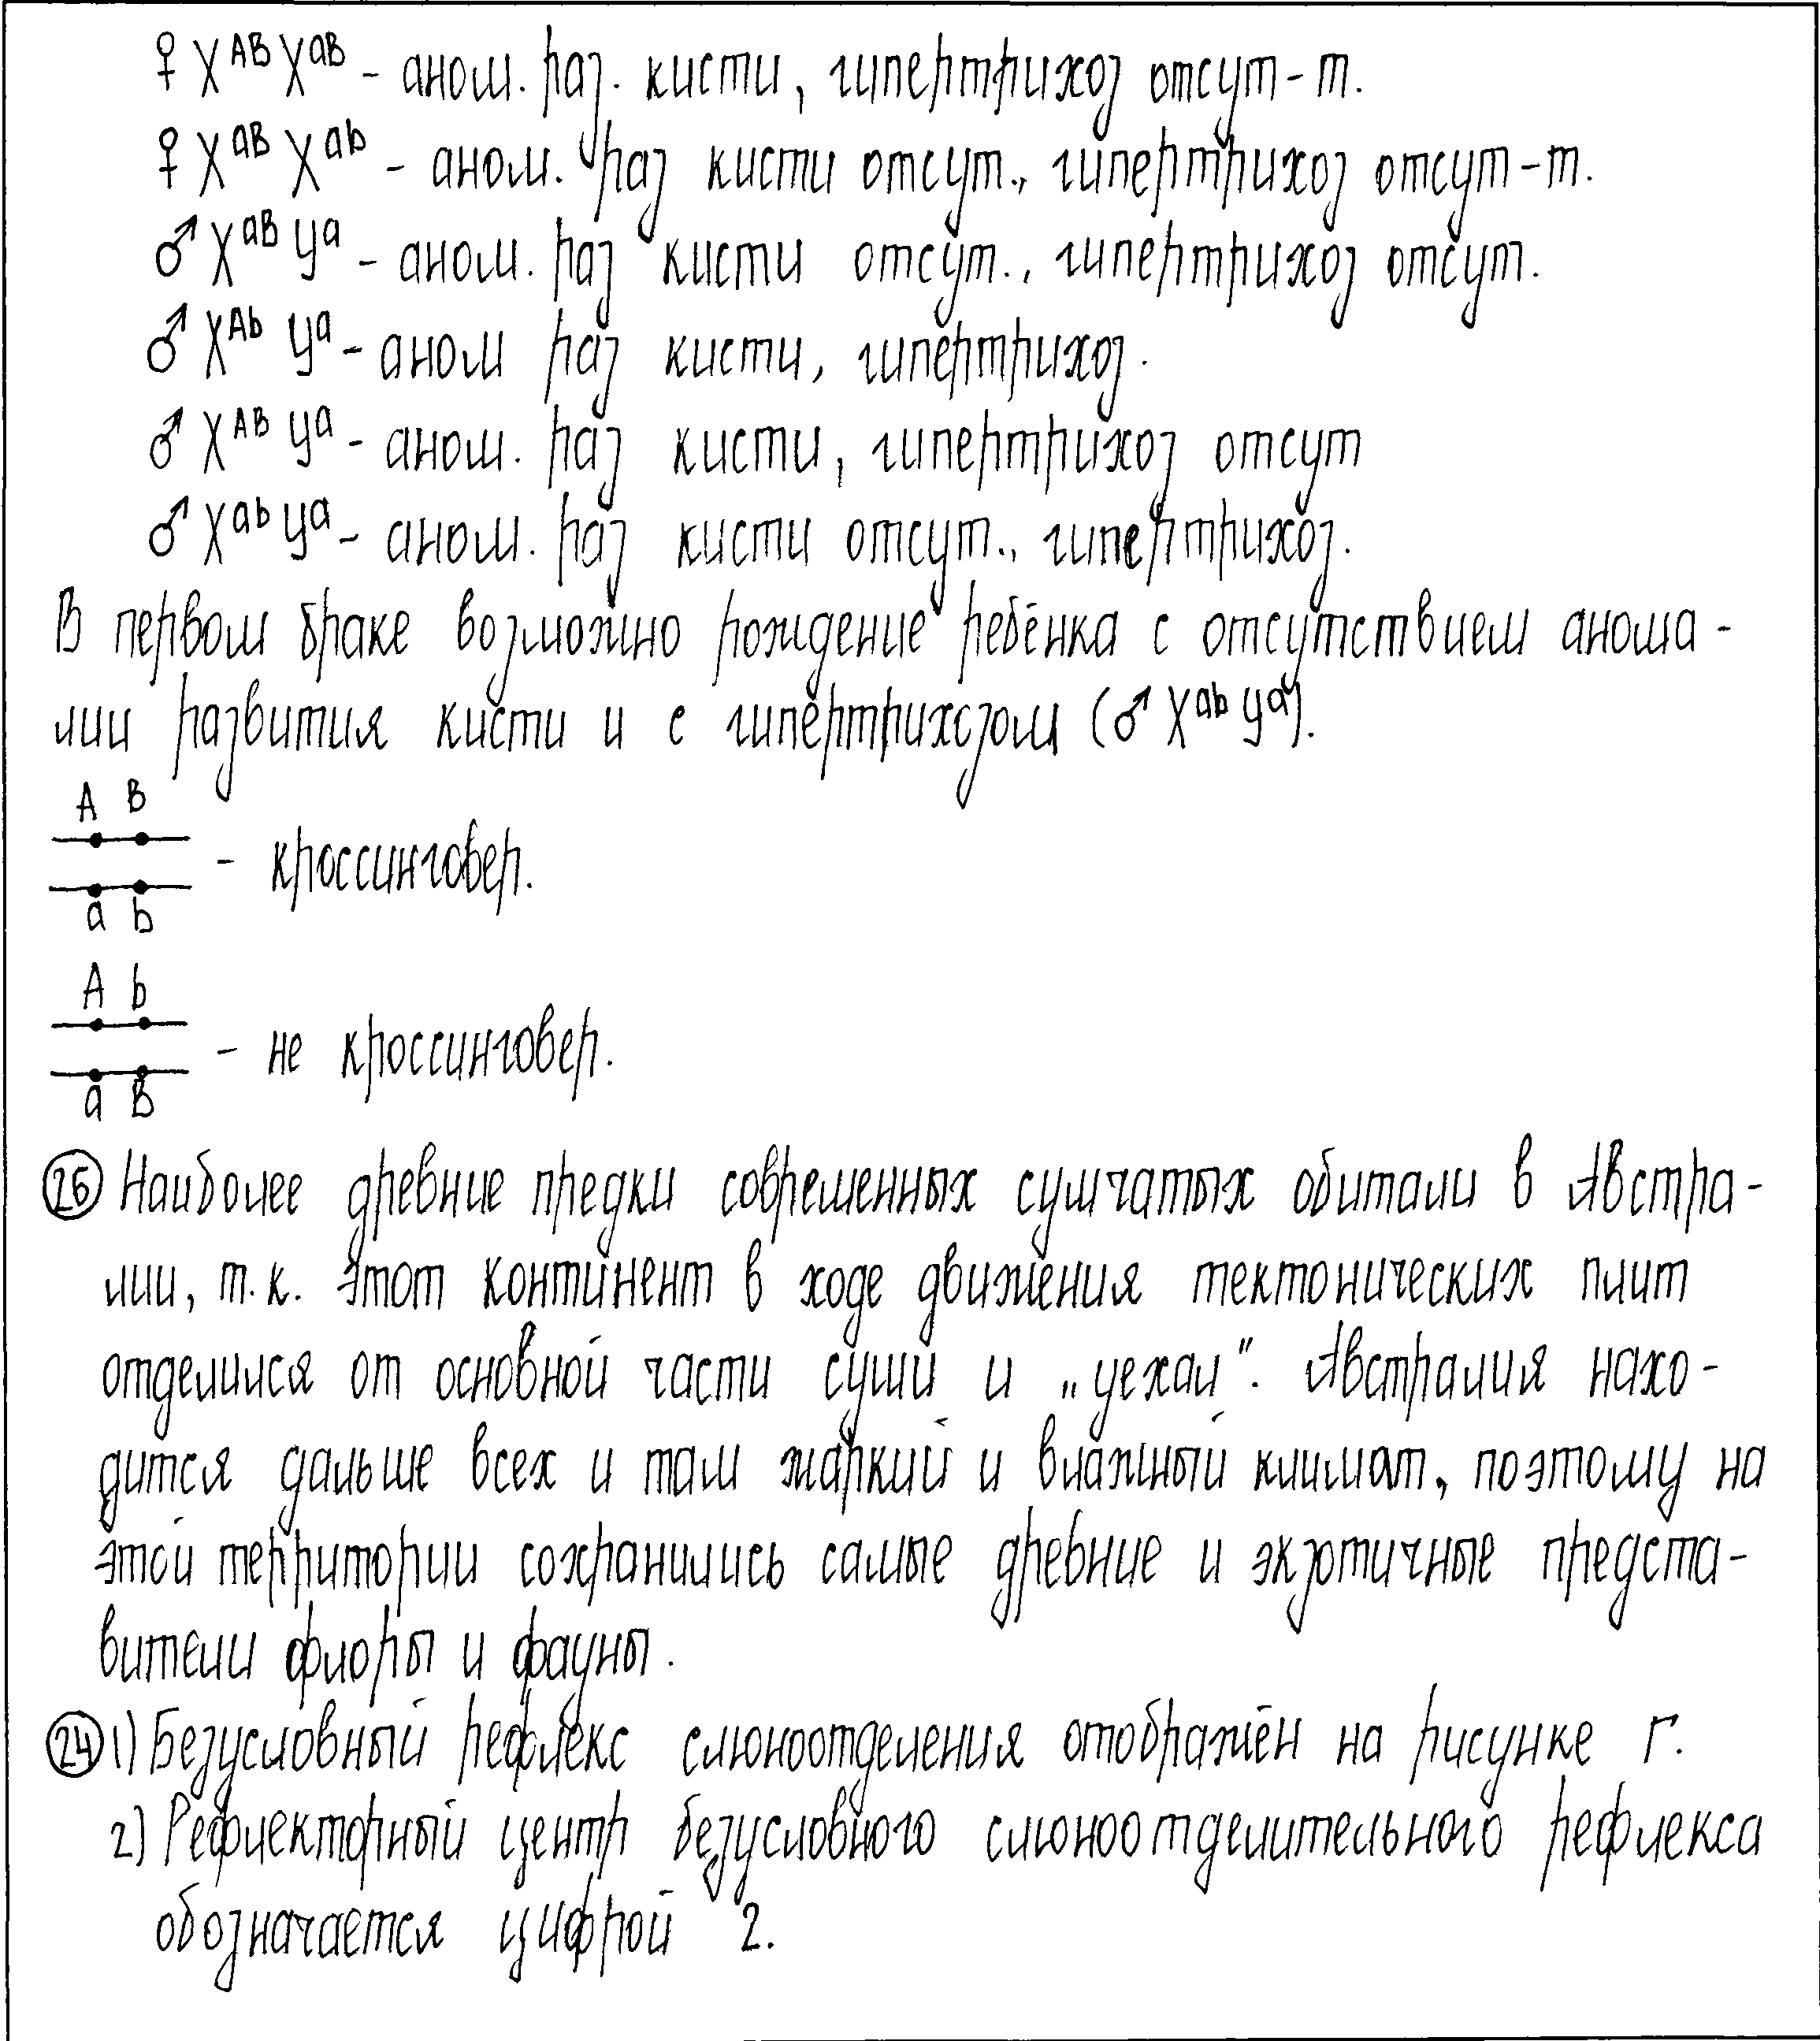 ♀ X^AB X^aB - аном. раз. кисти, гипертрихоз отсут-т.
♀ X^aB X^ab - аном. раз кисти отсут., гипертрихоз отсут-т.
♂ X^aB Y^a - аном. раз кисти отсут., гипертрихоз отсут.
♂ X^Ab Y^a - аном раз кисти, гипертрихоз.
♂ X^AB Y^a - аном. раз кисти, гипертрихоз отсут
♂ X^ab Y^a - аном. раз кисти отсут., гипертрихоз.
В первом браке возможно рождение ребёнка с отсутствием анома-
лии развития кисти и с гипертрихозом (♂ X^ab Y^a).
A B
- кроссинговер.
a b
A b
- не кроссинговер.
a B
26 Наиболее древние предки современных сумчатых обитали в Австра-
лии, т.к. этот континент в ходе движения тектонических плит
отделился от основной части суши и „уехал". Австралия нахо-
дится дальше всех и там жаркий и влажный климат, поэтому на
этой территории сохранились самые древние и экзотичные предста-
вители флоры и фауны.
24 1) Безусловный рефлекс слюноотделения отображён на рисунке Г.
2) Рефлекторный центр безусловного слюноотделительного рефлекса
обозначается цифрой 2.